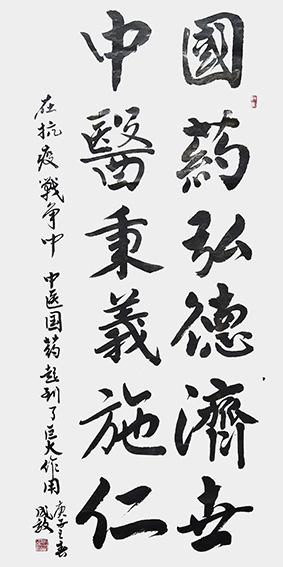 國药弘德濟世
中醫秉義施仁
在抗疫战争中 中医国药起到了巨大作用
庚子之春